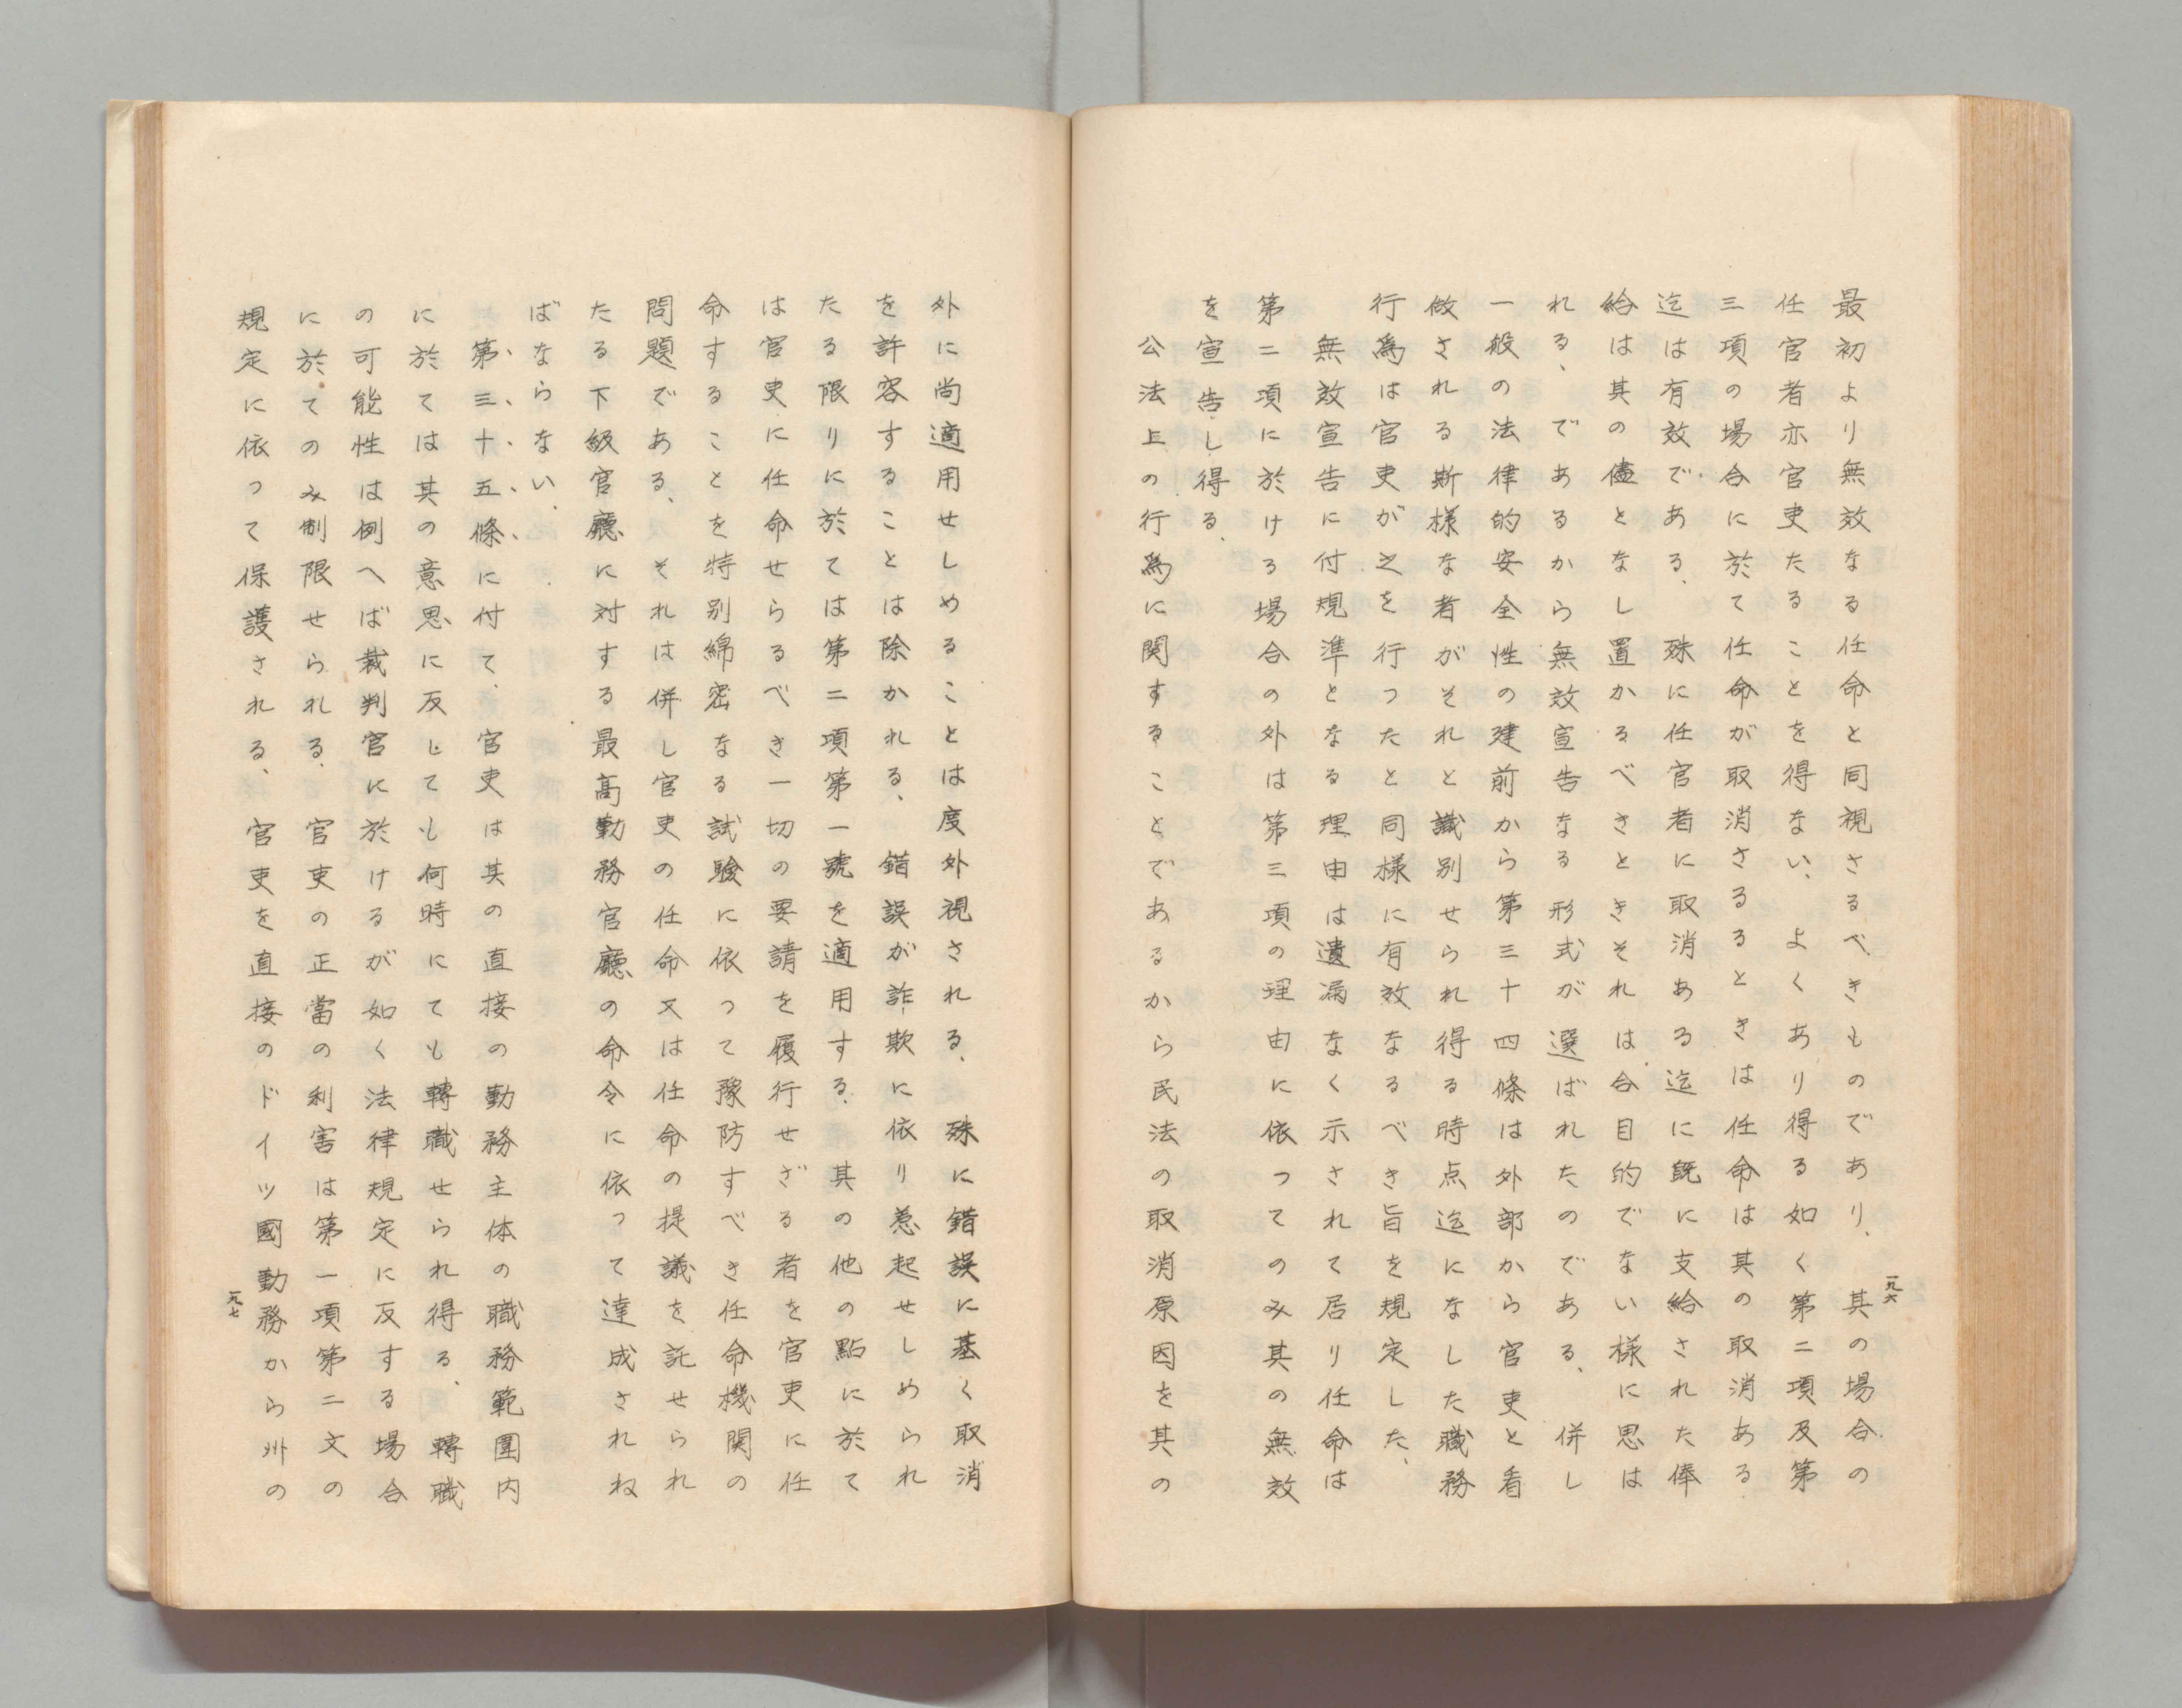 最初より無效なる任命と同視さるべきものであり、其の場合の
任官者亦官吏たることを得ない、よくあり得る如く第二項及第
三項の場合に於て任命が取消さるるときは任命は其の取消ある
迄は有效である、殊に任官者に取消ある迄に既に支給された俸
給は其の儘となし置かるべきときそれは合目的でない様に思は
れる、であるから無效宣告なる形式が選ばれたのである、併し
一般の法律的安全性の建前から第三十四條は外部から官吏と看
做される斯様な者がそれと識別せられ得る時点迄になした職務
行爲は官吏が之を行つたと同様に有效なるべき旨を規定した、
無效宣告に付規準となる理由は遺漏なく示されて居り任命は
第二項に於ける場合の外は第三項の理由に依つてのみ其の無效
を宣告し得る、
公法上の行爲に関することであるから民法の取消原因を其の
一九六
外に尚適用せしめることは度外視される、殊に錯誤に基く取消
を許容することは除かれる、錯誤が詐欺に依り惹起せしめられ
たる限りに於ては第二項第一號を適用する、其の他の點に於て
は官吏に任命せらるべき一切の要請を履行せざる者を官吏に任
命することを特別綿密なる試驗に依つて豫防すべき任命機関の
問題である、それは併し官吏の任命又は任命の提議を託せられ
たる下級官廳に対する最高勤務官廳の命令に依つて達成されね
ばならない、
第三十五條に付て、官吏は其の直接の勤務主体の職務範圍内
に於ては其の意思に反しても何時にても轉職せられ得る、轉職
の可能性は例へば裁判官に於けるが如く法律規定に反する場合
に於てのみ制限せられる、官吏の正當の利害は第一項第二文の
規定に依つて保護される、官吏を直接のドイツ國勤務から州の
一九七